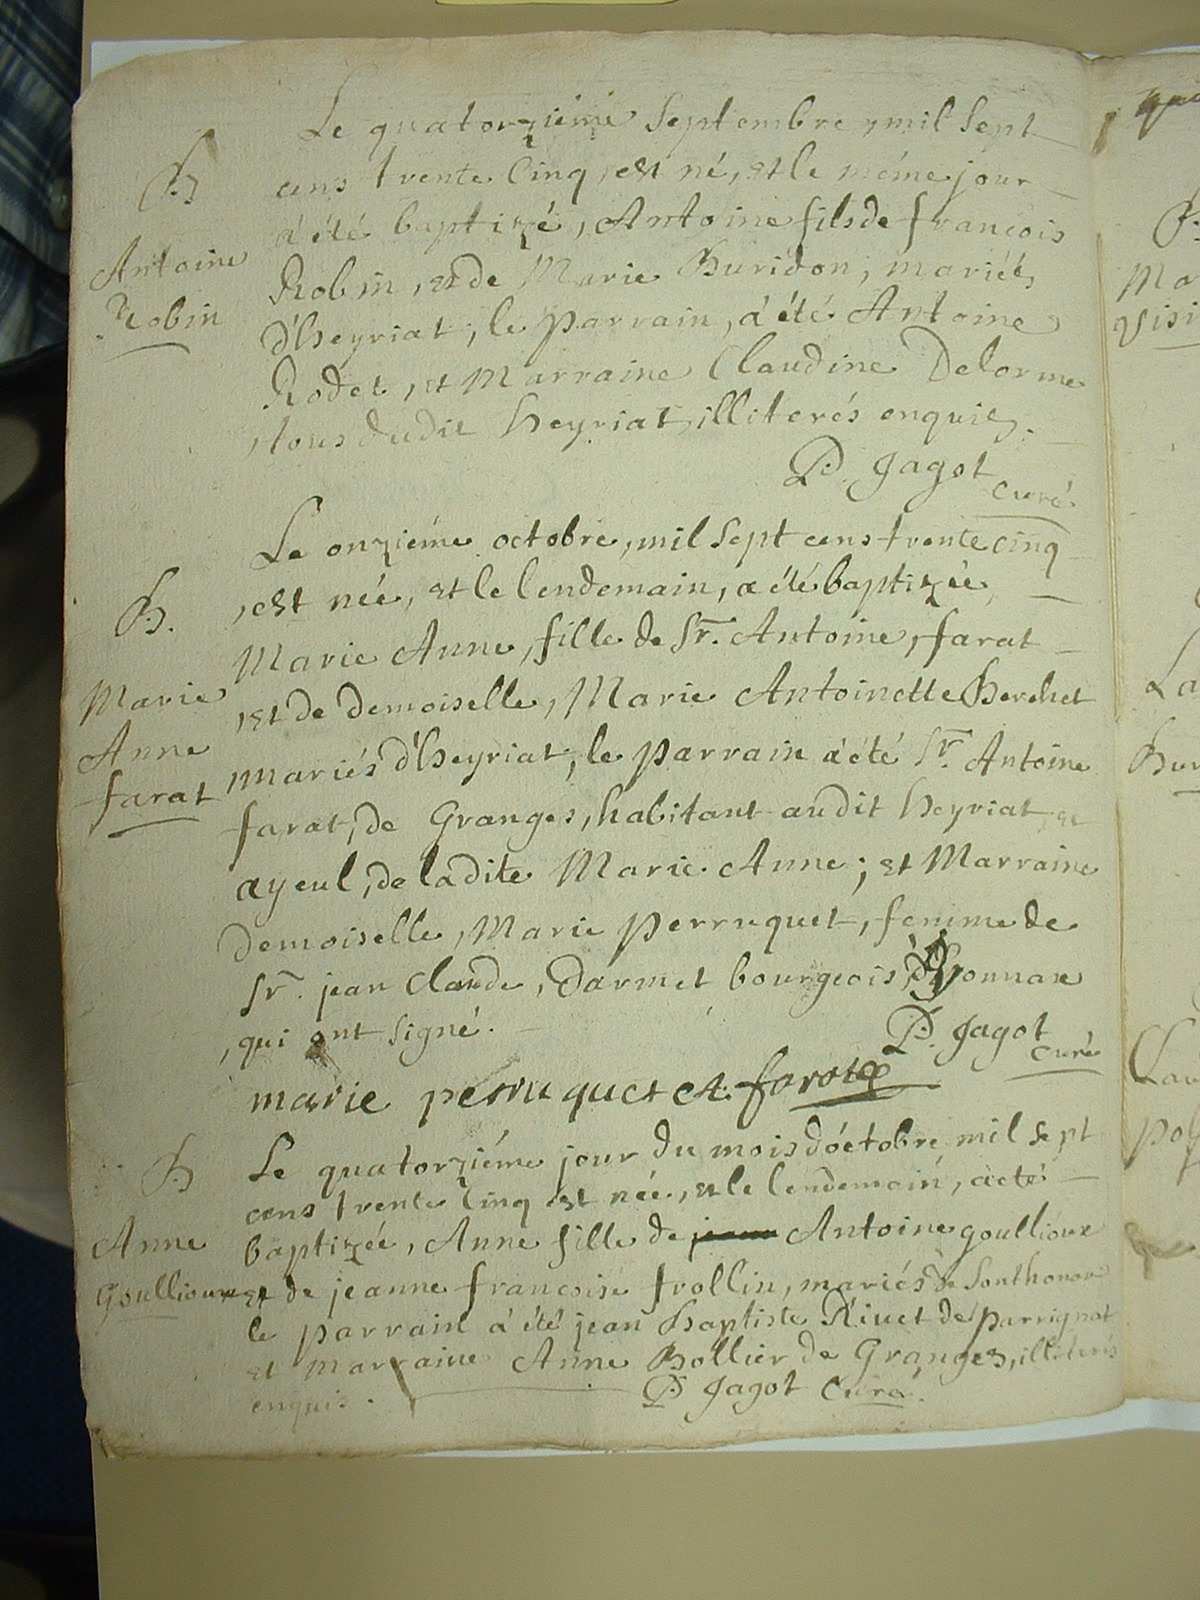 Le quatorziéme Septembre, mil Sept
B
cens trente Cinq, est né, et le méme jour
à été baptizé, Antoine fils de françois
Antoine
Robin, et de Marie Buridon, mariés,
Robin
d'heyriat; le parrain, à été Antoine
Rodet, et Marraine Claudine Delorme
, tous dudit heyriat, illiterés enquis.
D. Jagot
curé
Le onziéme octobre, mil Sept cens trente cinq
, est née, et le lendemain, a été baptizée,
B.
Marie Anne, fille de Sr. Antoine, farat
Marie
, et de demoiselle, Marie Antoinette Berchet
Anne
mariés d'heyriat; le parrain à été Sr. Antoine
farat
farat, de Granges, habitant audit heyriat, et
ayeul, de ladite Marie Anne; et Marraine
demoiselle, Marie perruquet, femme de
Sr. jean Claude, darmet bourgeois, d'oyonnax
, qui ont Signé.
D. Jagot
curé
marie perruquet A. farat
B
Le quatorziéme jour du mois d'octobre, mil Sept
cens trente Cinq est née, et le lendemain, a été
Anne
baptizée, Anne fille de Antoine goullioux
Goullioux
et de jeanne françoise frollin, mariés de Sonthonax
le parrain à été jean Baptiste Rivet de parrignat
et marraine Anne Bollier de Granges, illiterés
enquis.
D. Jagot Curé.
Ma
visi
La
Bur
Clau